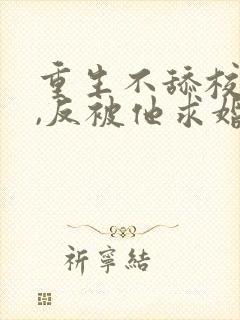 重生不舔校
,反被他求婚
祈寧結